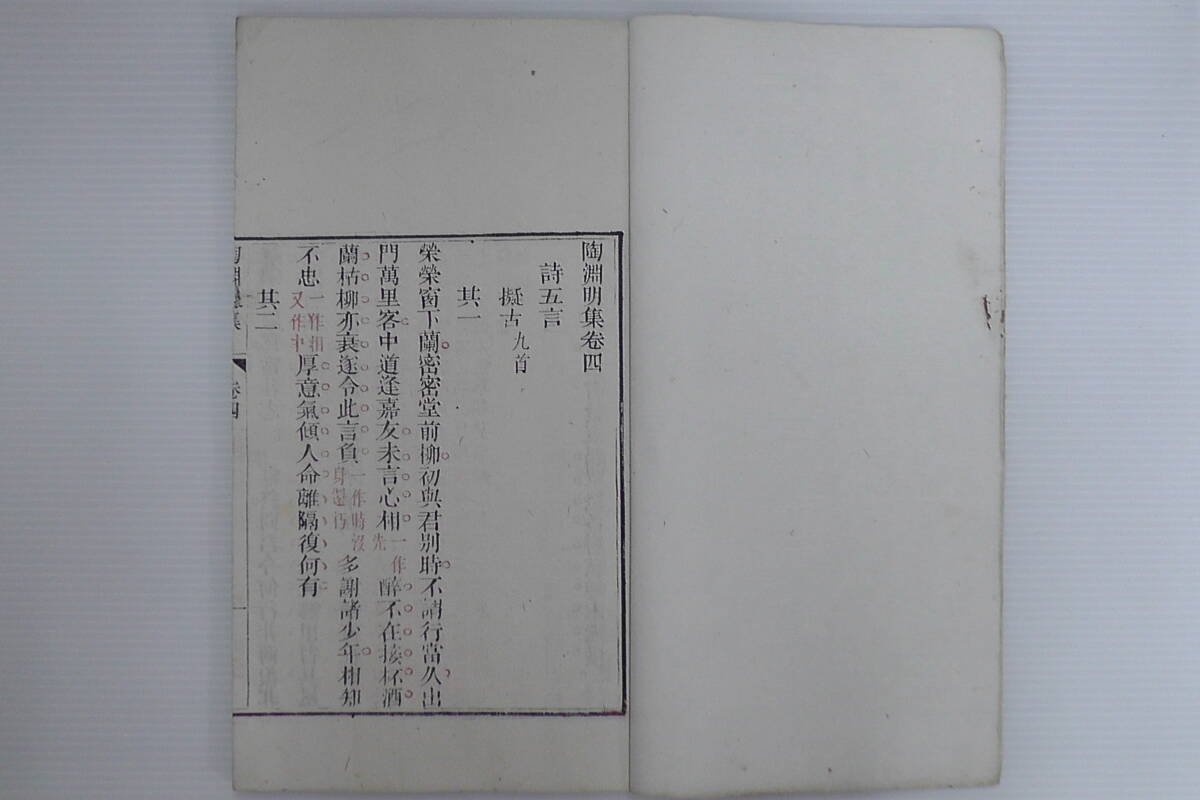 陶淵明集卷四
詩五言
擬古九首
其一
榮榮窗下蘭密密堂前柳初與君別時不謂行當久出
門萬里客中道逢嘉友未言心相一作先醉不在接杯酒
蘭枯柳亦衰遂令此言負一作時沒身還朽多謝諸少年相知
不忠一作相又作中厚意氣傾人命離隔復何有
其二
陶淵明集 卷四 一